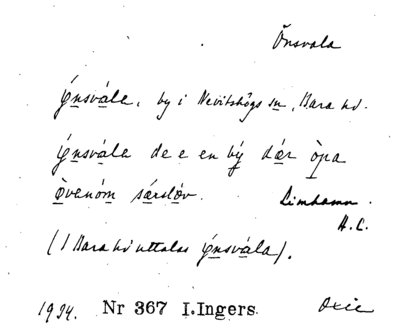 Önsvala
ýnsvále, by i Nevitshögs sn, Bara hd.
ýnsvále de e en bý dár òpa
òvenóm sárslóv. Limhamn
H.C.
(I Bara hd uttalas ýnsvála).
1934. Nr 367 I.Ingers. Oxie